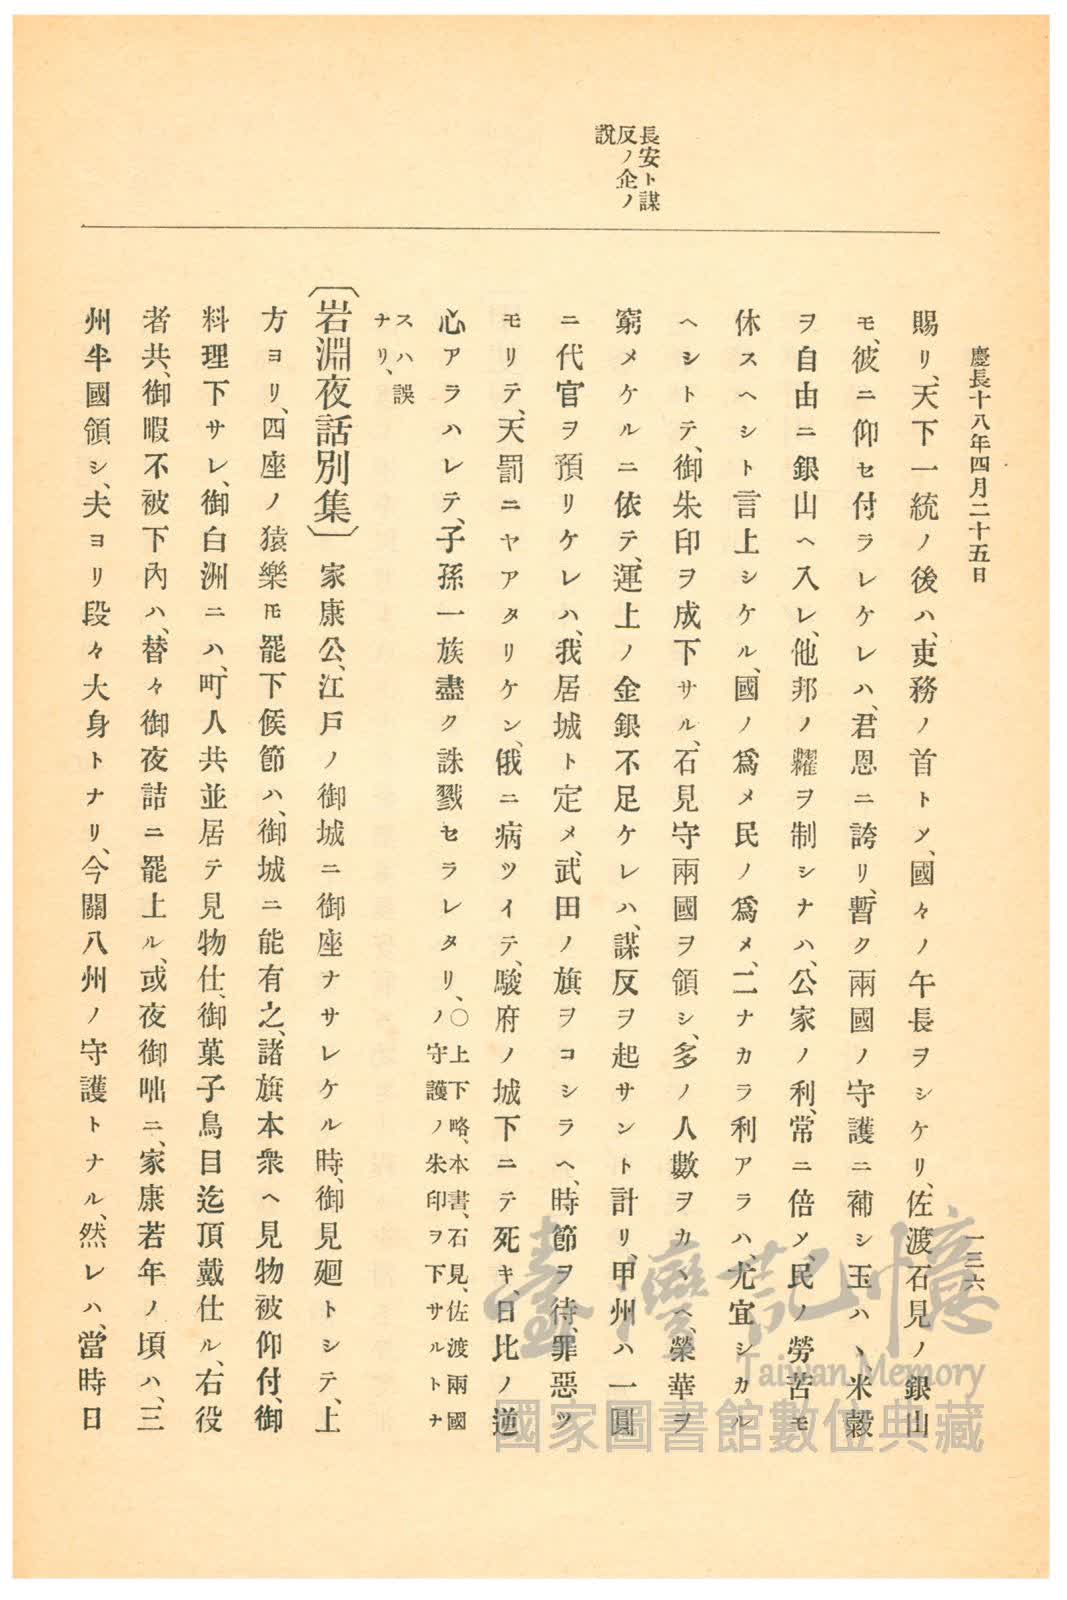 慶長十八年四月二十五日
一三六
長安ト謀
反ノ企ノ
說
賜リ、天下一統ノ後ハ、吏務ノ首トメ、國々ノ午長ヲシケリ、佐渡石見ノ銀山
モ、彼ニ仰セ付ラレケレハ、君恩ニ誇リ、暫ク兩國ノ守護ニ補シ玉ハヽ、米穀
ヲ自由ニ銀山ヘ入レ、他邦ノ糶ヲ制シナハ、公家ノ利、常ニ倍メ、民ノ勞苦モ
休スヘシト言上シケル、國ノ爲メ民ノ爲メ、二ナカラ利アラハ、尤宜シカル
ヘシトテ、御朱印ヲ成下サル、石見守兩國ヲ領シ、多ノ人數ヲカヽヘ、榮華ヲ
窮メケルニ依テ、運上ノ金銀不足ケレハ、謀反ヲ起サント計リ、甲州ハ一圓
ニ代官ヲ預リケレハ、我居城ト定メ、武田ノ旗ヲコシラヘ、時節ヲ待、罪惡ツ
モリテ、天罰ニヤアタリケン、俄ニ病ツイテ、駿府ノ城下ニテ死キ、日比ノ逆
心アラハレテ、子孫一族盡ク誅戮セラレタリ、〇上下略、本書、石見、佐渡兩國
ノ守護ノ朱印ヲ下サルトナ
スハ誤
ナリ、
〔岩淵夜話別集〕 家康公、江戸ノ御城ニ御座ナサレケル時、御見廻トシテ、上
方ヨリ、四座ノ猿樂𪜈罷下候節ハ、御城ニ能有之、諸旗本衆ヘ見物被仰付、御
料理下サレ、御白洲ニハ、町人共並居テ見物仕、御菓子鳥目迄頂戴仕ル、右役
者共、御暇不被下內ハ、替々御夜詰ニ罷上ル、或夜御咄ニ、家康若年ノ頃ハ、三
州半國領シ、夫ヨリ段々大身トナリ、今關八州ノ守護トナル、然レハ、當時日
臺灣記憶
Taiwan Memory
國家圖書館數位典藏